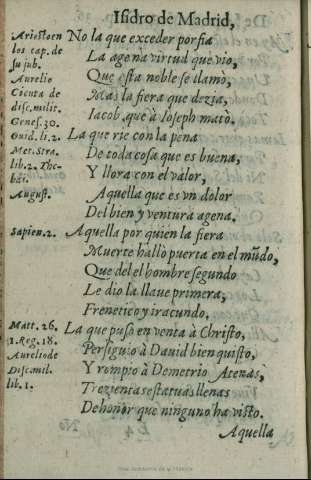 Isidro de Madrid,
Aristo en
los cap. de
su jub.
Aurelio
Cienta de
disc.milit.
Genes.30.
Guid.li.2.
Mer.Stra.
lib.2.The-
bai.
August.
Sapien.2.
Matt.26.
1.Reg.18.
Aurelio de
Disc.mil.
lib.1.
No la que exceder porfia
La agena virtud que vio,
Que esta noble se llamo,
Mas la fiera que dezia,
Iacob, que à Ioseph matò.
La que rie con la pena
De toda cosa que es buena,
Y llora con el valor,
Aquella que es vn dolor
Del bien y ventura agena.
Aquella por quien la fiera
Muerte hallò puerta en el mũdo,
Que del el hombre segundo
Le dio la llaue primera,
Frenetico y iracundo.
La que puso en venta à Christo,
Persiguio à Dauid bien quisto,
Y rompio à Demetrio Atenas,
Trezientas estatuas llenas
De honor que ninguno ha visto.
Aquella